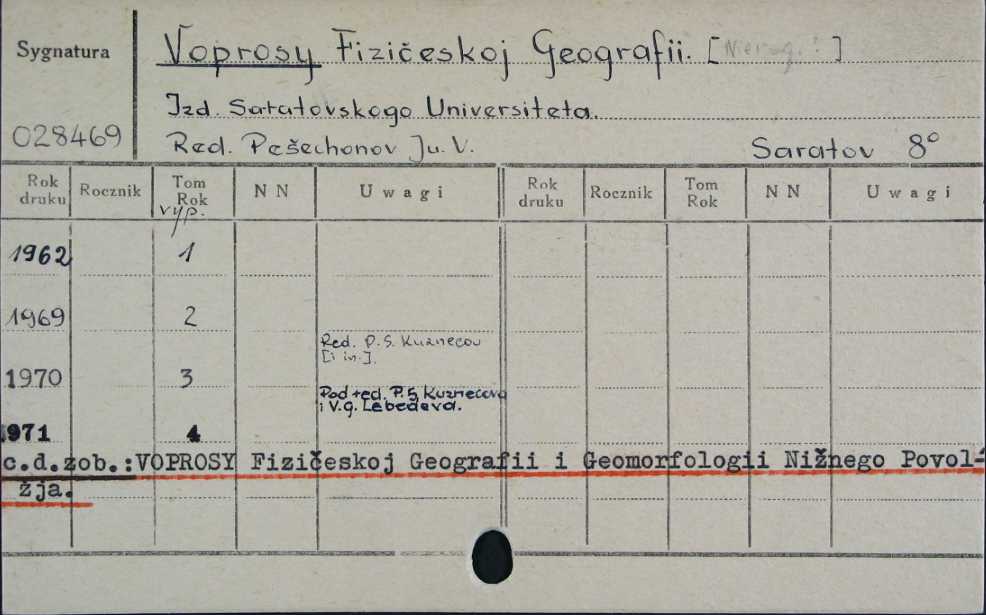 Sygnatura
Voprosy Fizičeskoj Geografii. [ ]
Izd. Saratovskogo Universiteta.
028469 Red. Pešechonov Ju. V. Saratov 8°
Rok druku Rocznik Tom Rok NN Uwagi Rok druku Rocznik Tom Rok NN Uwagi
vyp.
1962 1
1969 2
Red. P. S. Kuznecov
[i in.].
1970 3
Pod red. P. S. Kuznecova
i V. G. Lebedeva.
1971 4
c.d.zob.:VOPROSY Fizičeskoj Geografii i Geomorfologii Nižnego Povol-
žja.